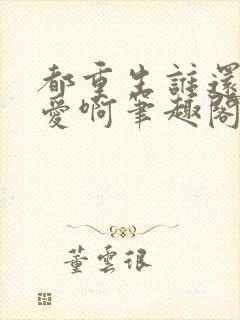 都重生誰還
愛啊筆趣閣
董雲很